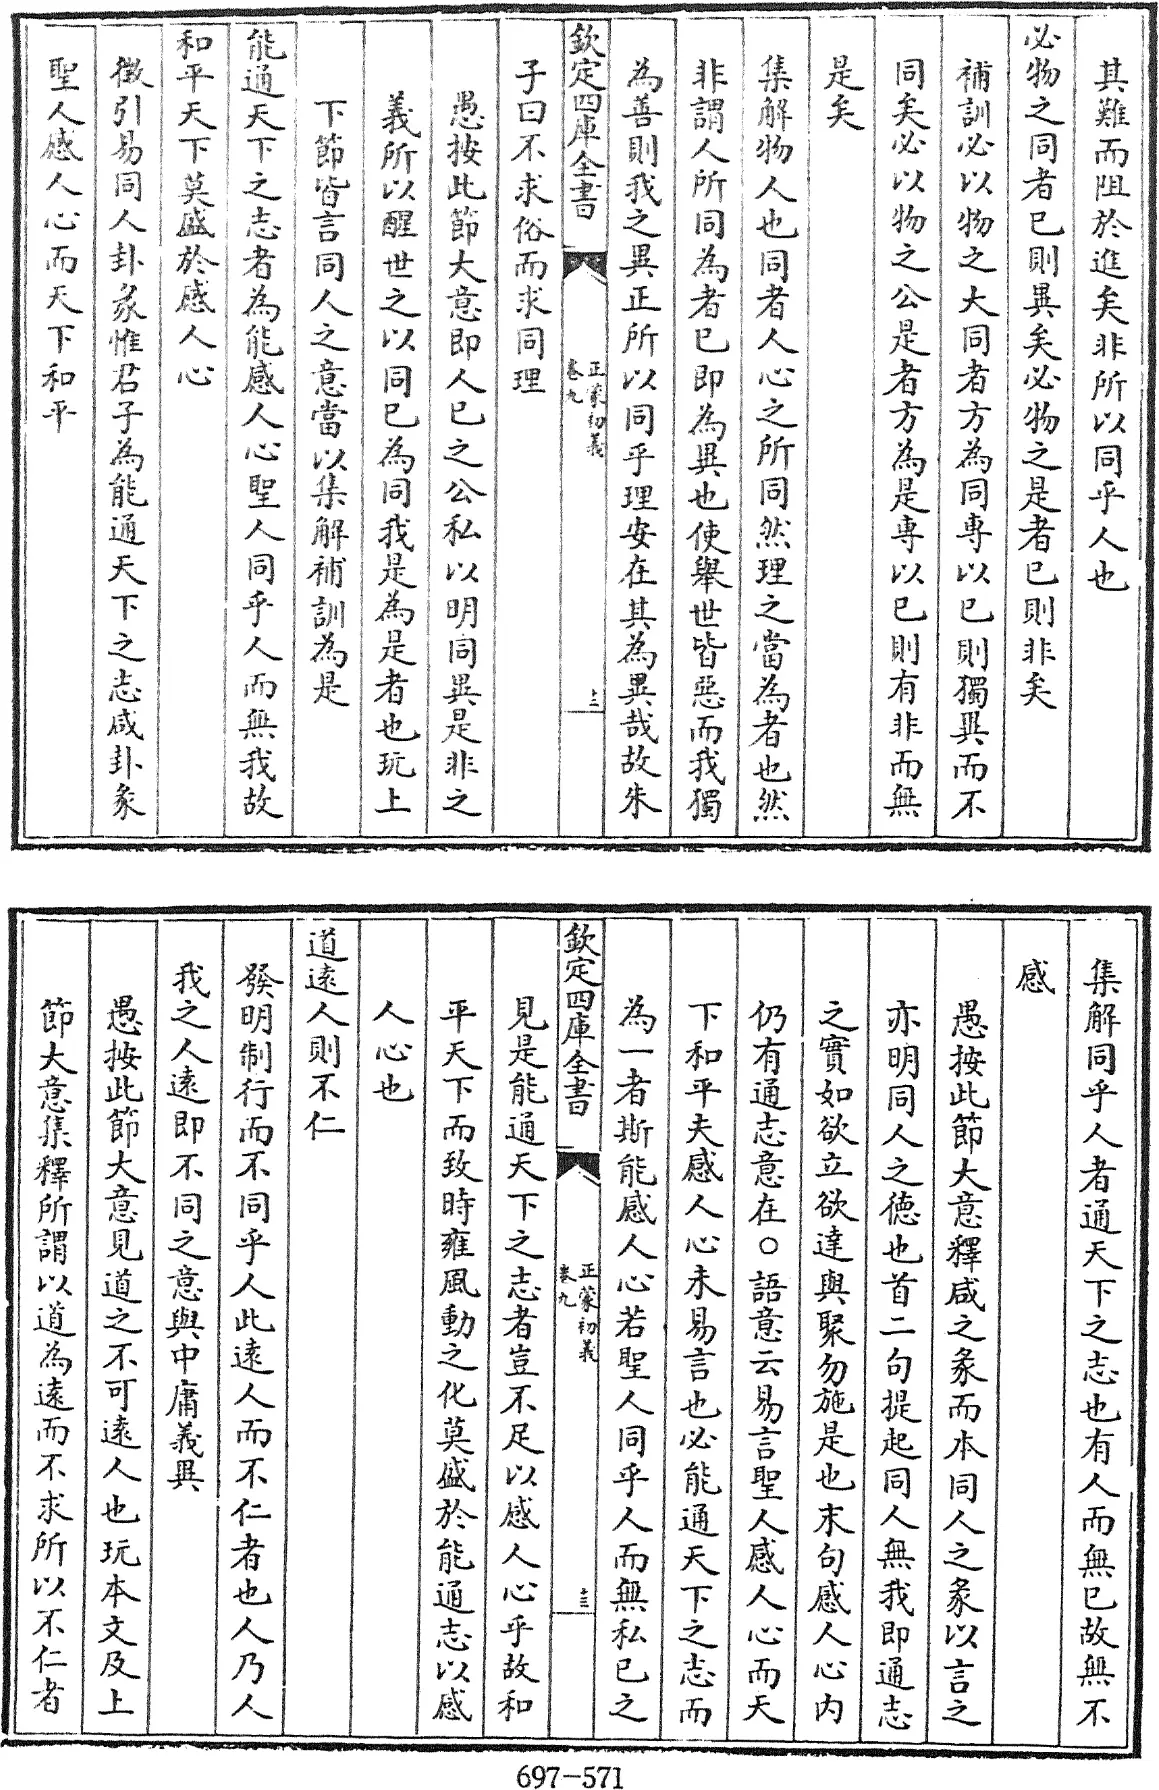 其難而阻於進矣非所以同乎人也
必物之同者已則異矣必物之是者已則非矣
補訓必以物之大同者方為同専以已則獨異而不
同矣必以物之公是者方為是専以已則有非而無
是矣
集解物人也同者人心之所同然理之當為者也然
非謂人所同為者已即為異也使舉世皆惡而我獨
為善則我之異正所以同乎理安在其為異哉故朱
欽定四庫全書
正蒙初義
卷九
十二
子曰不求俗而求同理
愚按此節大意即人已之公私以明同異是非之
義所以醒世之以同已為同我是為是者也玩上
下節皆言同人之意當以集解補訓為是
能通天下之志者為能感人心聖人同乎人而無我故
和平天下莫盛於感人心
徵引易同人卦彖惟君子為能通天下之志咸卦彖
聖人感人心而天下和平
集解同乎人者通天下之志也有人而無已故無不
感
愚按此節大意釋咸之彖而本同人之彖以言之
亦明同人之德也首二句提起同人無我即通志
之實如欲立欲達與聚勿施是也末句感人心内
仍有通志意在○語意云易言聖人感人心而天
下和平夫感人心未易言也必能通天下之志而
為一者斯能感人心若聖人同乎人而無私已之
欽定四庫全書
正蒙初義
卷九
十三
見是能通天下之志者豈不足以感人心乎故和
平天下而致時雍風動之化莫盛於能通志以感
人心也
道逺人則不仁
發明制行而不同乎人此逺人而不仁者也人乃人
我之人逺即不同之意與中庸義異
愚按此節大意見道之不可逺人也玩本文及上
節大意集釋所謂以道為逺而不求所以不仁者
697-571